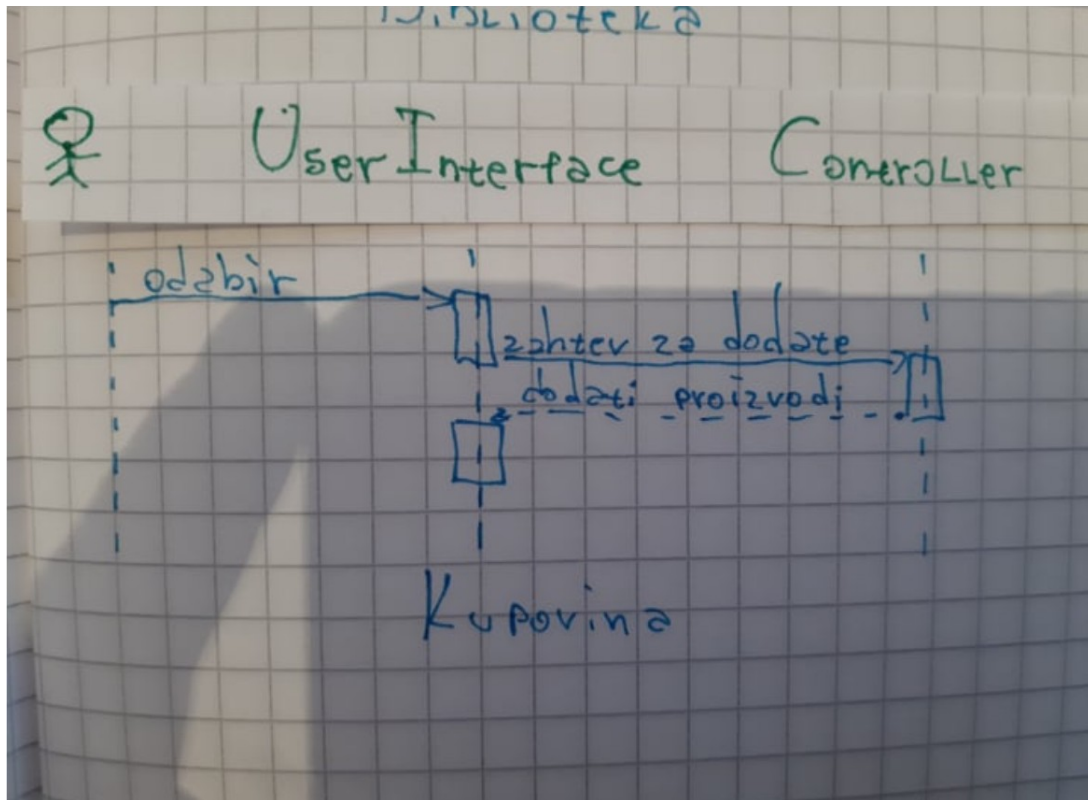 Biblioteka
User Interface Controller
odabir
zahtev za dodate
dodati proizvodi
Kupovina